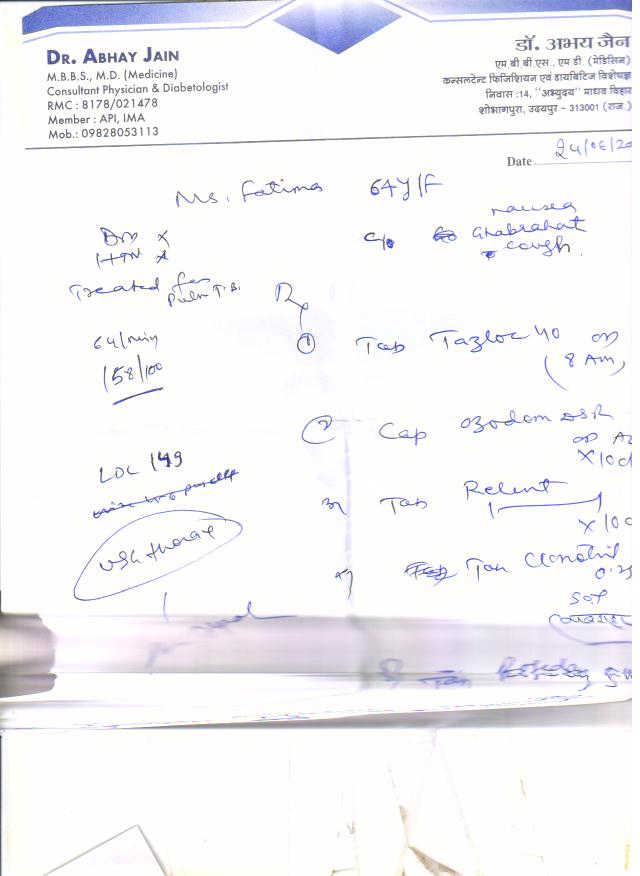 DR. ABHAY JAIN
M.B.B.S., M.D. (Medicine)
Consultant Physician & Diabetologist
RMC : 8178/021478
Member : API, IMA
Mob.: 09828053113
डॉ. अभय जैन
एम.बी.बी.एस., एम.डी. (मेडिसिन)
कन्सलटेन्ट फिजिशियन एवं डायबिटिज विशेषज्ञ
निवास :14, "अभ्युदय" माधव विहार
शोभागपुरा, उदयपुर - 313001 (राज.)
Date 24/06/20
Ms. Fatima 64Y/F
DM x
HTN x
Treated for
Pulm T.B.
64/min
158/100
LDL 149
USG thorax
c/o nausea
Ghabrahat
cough
Rx
① Tab Tazloc 40 OD
(8 Am)
② Cap Ozodom DSR
OD
x10d
3 Tab Relent
x10
4 Tab Clonotril
0.25
SOS
Tab